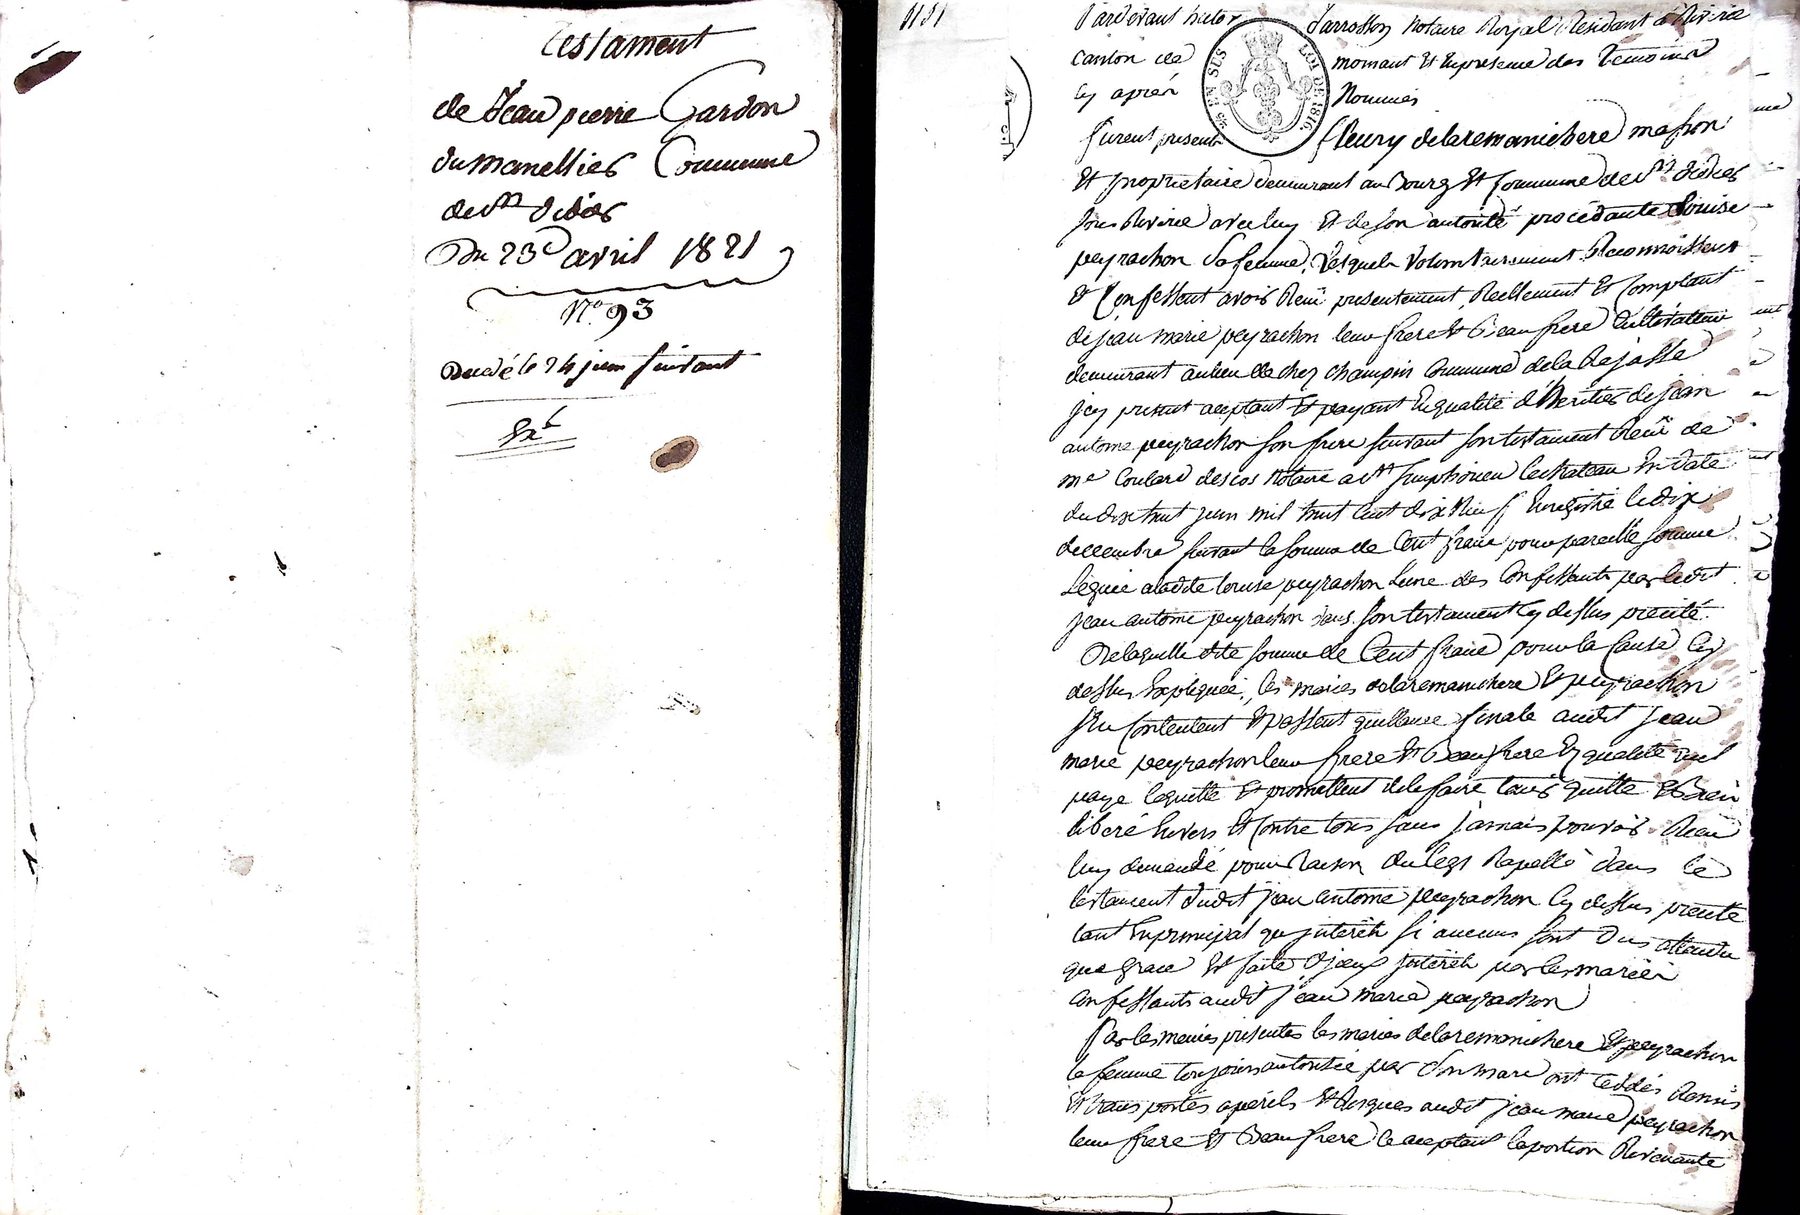 testament
de Jean pierre Gardon
du manellier Commune
de st didier
Du 23e avril 1821
No. 93
Decedé le 24 juin suivant
Pardevant
Jarrosson Notaire Royal Résidant à Riverie
canton de
mornant Et En presence des Temoins
Cy après
Nommés
EN SUS
LOI DE 1816.
furent presents
fleury delaremanichere masson
Et proprietaire demeurant au Bourg Et Commune de st didier
sous Riverie avec luy Et de son autorité procédante Louise
peyrachon sa femme, Lesquels volontairement Reconnoissent
Et Confessent avoir Reçu presentement Reellement Et Comptant
de jean marie peyrachon leur frere Et Beaufrere Cultivateur
demeurant au lieu de chez champin Commune de la Rejasse
jcy present aceptant Et payant En qualité d'héritier de jean
antoine peyrachon son frere suivant son testament Reçu de
me Coulard descos Notaire a st simphorien le chateau En date
du dix huit juin mil huit cent dix Neuf Enregistré le dix
decembre suivant la somme de Cent francs pour pareille somme
Leguée a ladite louise peyrachon Lune des Confessants par ledit
jean antoine peyrachon dans son testament Cy dessus précité.
De laquelle dite somme de Cent francs pour la Cause Cy
dessus Expliquée, les mariés delaremanichere Et peyrachon
s'En Contentent Et passent quittance finale audit jean
marie peyrachon leur frere Et Beaufrere En qualité quil
paye lequitte Et promettent de le faire tenir quitte Et Bien
libéré Envers Et Contre tous sans jamais pouvoir Rien
luy demandé pour Raison du legs Rapellé dans le
testament dudit jean antoine peyrachon Cy dessus précité
tant En principal qu'jntérêts si aucuns sont dus attendu
que grace Est faite d'jceux jntérêts par les mariés
Confessants audit jean marie peyrachon
Par les memes presentes les mariés delaremanichere Et peyrachon
la femme toujours autorisée par Son mari ont Cédés Remis
Et transportés a perils Et Risques audit jean marie peyrachon
leur frere Et Beaufrere Ce aceptant la portion Revenante